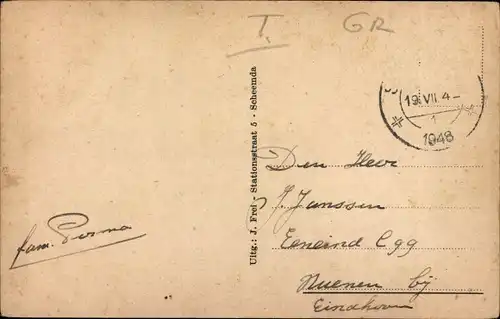 T.
GR
19 VII 4-
1
1948
Uitg.: J. Frei - Stationsstraat 5 - Scheemda
Den Heer
J. Janssen
Eeneind C 99
Nuenen bij
Eindhoven
fam.